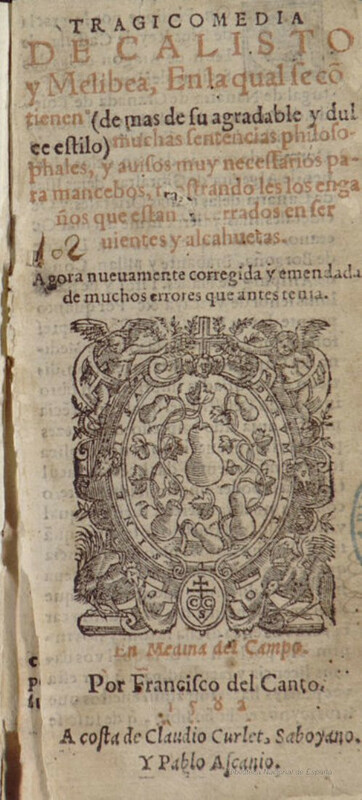 TRAGICOMEDIA
DE CALISTO
y Melibea, En la qual se cõ
tienen (de mas de su agradable y dul
ce estilo) muchas sentencias philoso-
phales, y auisos muy necessarios pa-
ra mancebos, mostrando les los enga
ños que estan rrados en ser
uientes y alcahuetas.
102
Agora nueuamente corregida y emendada
de muchos errores que antes tenia.
En Medina del Campo.
Por Francisco del Canto.
1582
A costa de Claudio Curlet, Saboyano.
Y Pablo Ascanio.
Biblioteca Nacional de España